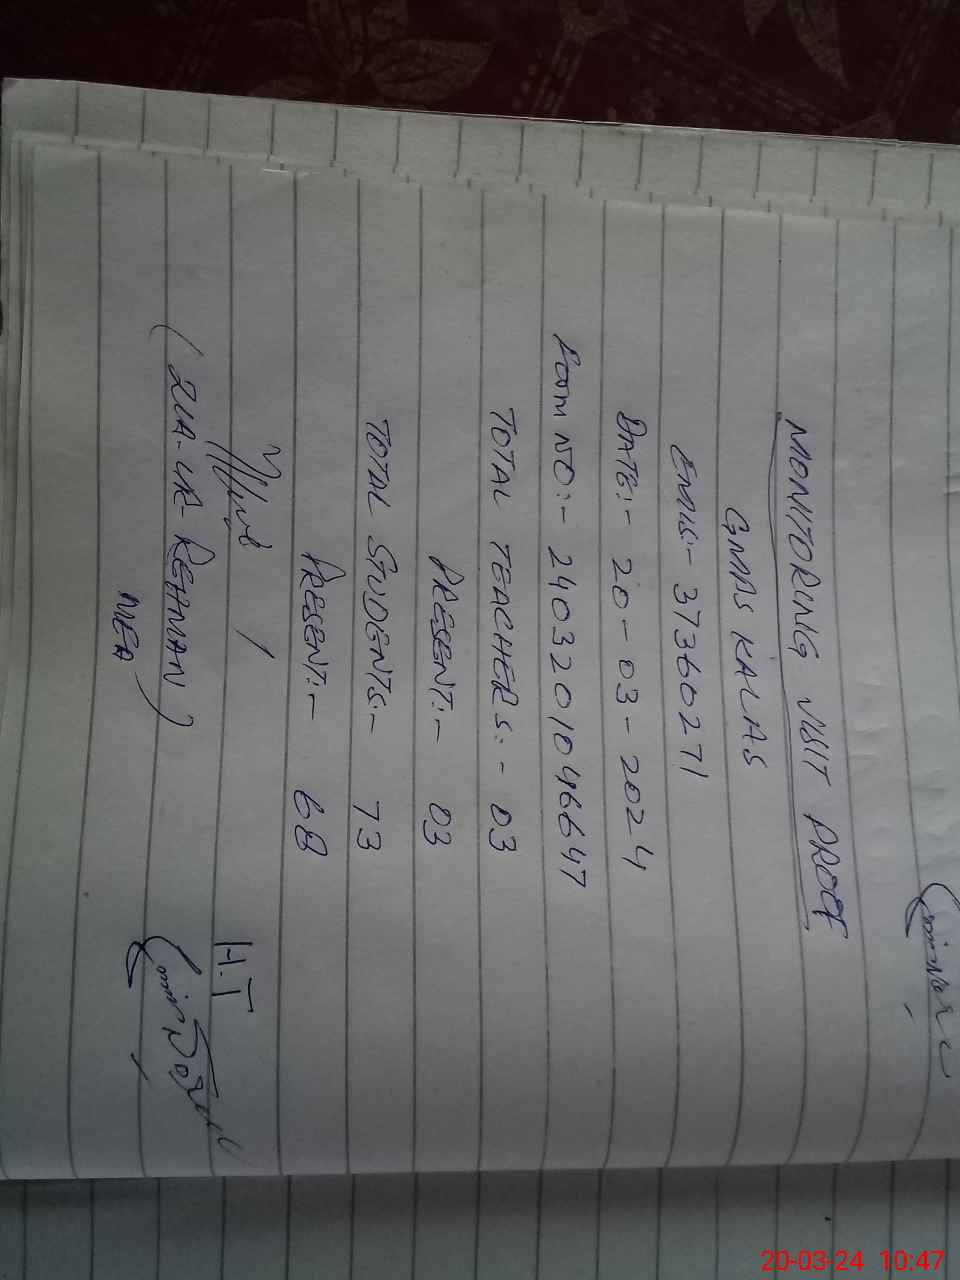 MONITORING VISIT PROOF
GMPS KALAS
EMIS:- 37360271
DATE:- 20-03-2024
FORM NO:- 2403201046647
TOTAL TEACHERS:- 03
PRESENT:- 03
TOTAL STUDENTS:- 73
PRESENT:- 68
(ZIA-UR-REHMAN)
MEA
H.T
20-03-24 10:47